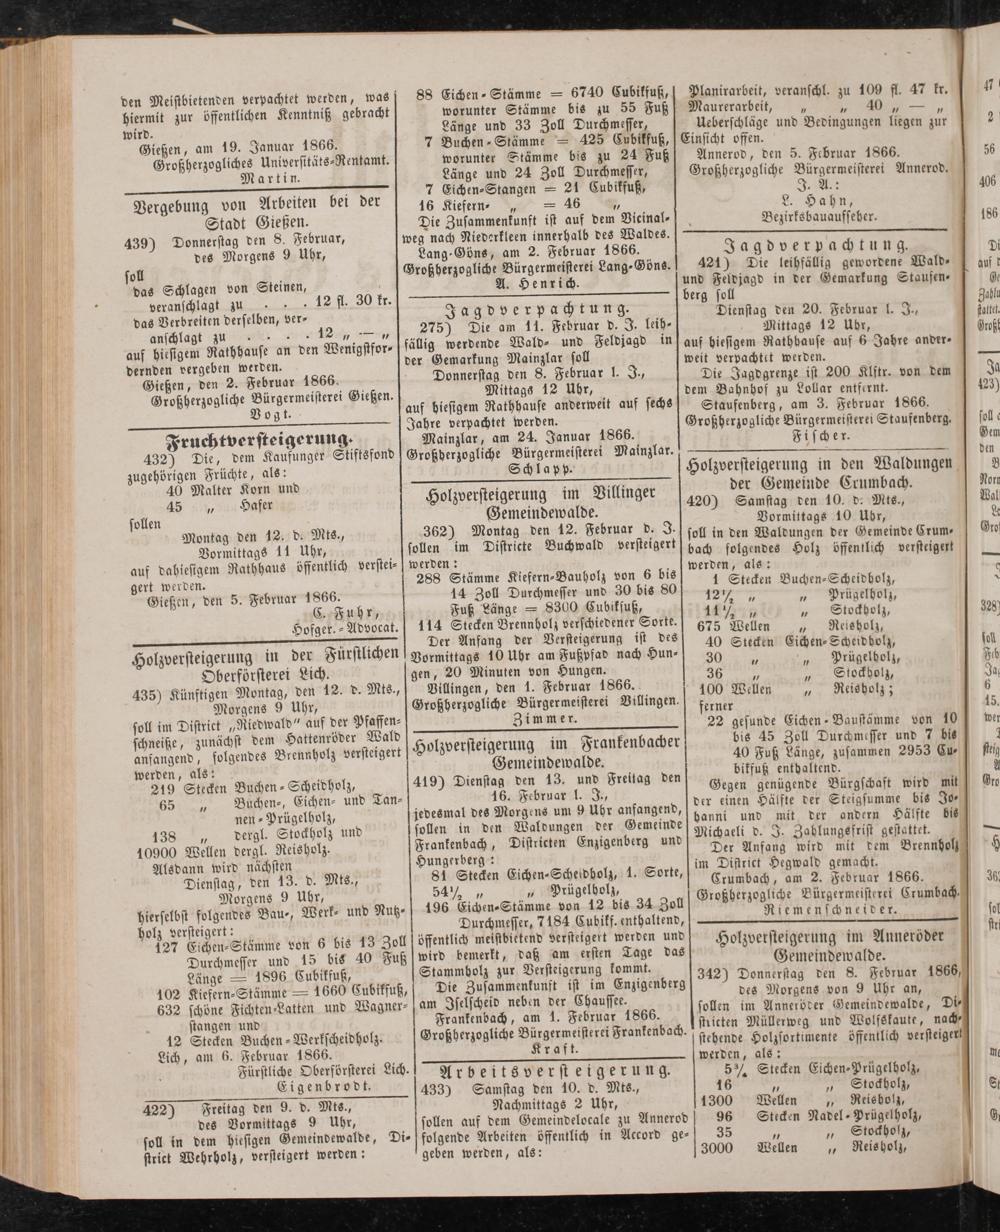 den Meistbietenden verpachtet werden, was
hiermit zur öffentlichen Kenntniß gebracht
wird.
Gießen, am 19. Januar 1866.
Großherzogliches Universitäts-Rentamt.
Martin.
Vergebung von Arbeiten bei der
Stadt Gießen.
439) Donnerstag den 8. Februar,
des Morgens 9 Uhr,
soll
das Schlagen von Steinen,
veranschlagt zu . . . 12 fl. 30 kr.
das Verbreiten derselben, ver-
anschlagt zu . . . . 12 „ — „
auf hiesigem Rathhause an den Wenigstfor-
dernden vergeben werden.
Gießen, den 2. Februar 1866.
Großherzogliche Bürgermeisterei Gießen.
Vogt.
Fruchtversteigerung.
432) Die, dem Kaufunger Stiftsfond
zugehörigen Früchte, als:
40 Malter Korn und
45 „ Hafer
sollen
Montag den 12. d. Mts.,
Vormittags 11 Uhr,
auf dahiesigem Rathhaus öffentlich verstei-
gert werden.
Gießen, den 5. Februar 1866.
C. Fuhr,
Hofger.-Advocat.
Holzversteigerung in der Fürstlichen
Oberförsterei Lich.
435) Künftigen Montag, den 12. d. Mts.,
Morgens 9 Uhr,
soll im District „Riedwald" auf der Pfaffen-
schneiße, zunächst dem Hattenröder Wald
anfangend, folgendes Brennholz versteigert
werden, als:
219 Stecken Buchen-Scheidholz,
65 „ Buchen-, Eichen- und Tan-
nen-Prügelholz,
138 „ dergl. Stockholz und
10900 Wellen dergl. Reisholz.
Alsdann wird nächsten
Dienstag, den 13. d. Mts.,
Morgens 9 Uhr,
hierselbst folgendes Bau-, Werk- und Nutz-
holz versteigert:
127 Eichen-Stämme von 6 bis 13 Zoll
Durchmesser und 15 bis 40 Fuß
Länge = 1896 Cubikfuß,
102 Kiefern-Stämme = 1660 Cubikfuß,
632 schöne Fichten-Latten und Wagner-
stangen und
12 Stecken Buchen-Werkscheidholz.
Lich, am 6. Februar 1866.
Fürstliche Oberförsterei Lich.
Eigenbrodt.
422) Freitag den 9. d. Mts.,
des Vormittags 9 Uhr,
soll in dem hiesigen Gemeindewalde, Di-
strict Wehrholz, versteigert werden:
88 Eichen-Stämme = 6740 Cubikfuß,
worunter Stämme bis zu 55 Fuß
Länge und 33 Zoll Durchmesser,
7 Buchen-Stämme = 425 Cubikfuß,
worunter Stämme bis zu 24 Fuß
Länge und 24 Zoll Durchmesser,
7 Eichen-Stangen = 21 Cubikfuß,
16 Kiefern- „ = 46 „
Die Zusammenkunft ist auf dem Vicinal-
weg nach Niederkleen innerhalb des Waldes.
Lang-Göns, am 2. Februar 1866.
Großherzogliche Bürgermeisterei Lang-Göns.
A. Henrich.
Jagdverpachtung.
275) Die am 11. Februar d. J. leih-
fällig werdende Wald- und Feldjagd in
der Gemarkung Mainzlar soll
Donnerstag den 8. Februar l. J.,
Mittags 12 Uhr,
auf hiesigem Rathhause anderweit auf sechs
Jahre verpachtet werden.
Mainzlar, am 24. Januar 1866.
Großherzogliche Bürgermeisterei Mainzlar.
Schlapp.
Holzversteigerung im Villinger
Gemeindewalde.
362) Montag den 12. Februar d. J.
sollen im Districte Buchwald versteigert
werden:
288 Stämme Kiefern-Bauholz von 6 bis
14 Zoll Durchmesser und 30 bis 80
Fuß Länge = 8300 Cubikfuß,
114 Stecken Brennholz verschiedener Sorte.
Der Anfang der Versteigerung ist des
Vormittags 10 Uhr am Fußpfad nach Hun-
gen, 20 Minuten von Hungen.
Villingen, den 1. Februar 1866.
Großherzogliche Bürgermeisterei Villingen.
Zimmer.
Holzversteigerung im Frankenbacher
Gemeindewalde.
419) Dienstag den 13. und Freitag den
16. Februar l. J.,
jedesmal des Morgens um 9 Uhr anfangend,
sollen in den Waldungen der Gemeinde
Frankenbach, Districten Enzigenberg und
Hungerberg:
81 Stecken Eichen-Scheidholz, 1. Sorte,
54½ „ „ Prügelholz,
196 Eichen-Stämme von 12 bis 34 Zoll
Durchmesser, 7184 Cubikf. enthaltend,
öffentlich meistbietend versteigert werden und
wird bemerkt, daß am ersten Tage das
Stammholz zur Versteigerung kommt.
Die Zusammenkunft ist im Enzigenberg
am Iselscheid neben der Chaussee.
Frankenbach, am 1. Februar 1866.
Großherzogliche Bürgermeisterei Frankenbach.
Kraft.
Arbeitsversteigerung.
433) Samstag den 10. d. Mts.,
Nachmittags 2 Uhr,
sollen auf dem Gemeindelocale zu Annerod
folgende Arbeiten öffentlich in Accord ge-
geben werden, als:
Planirarbeit, veranschl. zu 109 fl. 47 kr.
Maurerarbeit, „ „ 40 „ — „
Ueberschläge und Bedingungen liegen zur
Einsicht offen.
Annerod, den 5. Februar 1866.
Großherzogliche Bürgermeisterei Annerod.
J. A.:
L. Hahn,
Bezirksbauaufseher.
Jagdverpachtung.
421) Die leihfällig gewordene Wald-
und Feldjagd in der Gemarkung Staufen-
berg soll
Dienstag den 20. Februar l. J.,
Mittags 12 Uhr,
auf hiesigem Rathhause auf 6 Jahre ander-
weit verpachtet werden.
Die Jagdgrenze ist 200 Klftr. von dem
dem Bahnhof zu Lollar entfernt.
Staufenberg, am 3. Februar 1866.
Großherzogliche Bürgermeisterei Staufenberg.
Fischer.
Holzversteigerung in den Waldungen
der Gemeinde Crumbach.
420) Samstag den 10. d. Mts.,
Vormittags 10 Uhr,
soll in den Waldungen der Gemeinde Crum-
bach folgendes Holz öffentlich versteigert
werden, als:
1 Stecken Buchen-Scheidholz,
12½ „ „ Prügelholz,
11½ „ „ Stockholz,
675 Wellen „ Reisholz,
40 Stecken Eichen-Scheidholz,
30 „ „ Prügelholz,
36 „ „ Stockholz,
100 Wellen „ Reisholz;
ferner
22 gesunde Eichen-Baustämme von 10
bis 45 Zoll Durchmesser und 7 bis
40 Fuß Länge, zusammen 2953 Cu-
bikfuß enthaltend.
Gegen genügende Bürgschaft wird mit
der einen Hälfte der Steigsumme bis Jo-
hanni und mit der andern Hälfte bis
Michaeli d. J. Zahlungsfrist gestattet.
Der Anfang wird mit dem Brennholz
im District Hegwald gemacht.
Crumbach, am 2. Februar 1866.
Großherzogliche Bürgermeisterei Crumbach.
Riemenschneider.
Holzversteigerung im Anneröder
Gemeindewalde.
342) Donnerstag den 8. Februar 1866,
des Morgens von 9 Uhr an,
sollen im Anneröder Gemeindewalde, Di-
stricten Müllerweg und Wolfskaute, nach-
stehende Holzsortimente öffentlich versteigert
werden, als:
5¾ Stecken Eichen-Prügelholz,
16 „ „ Stockholz,
1300 Wellen „ Reisholz,
96 Stecken Nadel-Prügelholz,
35 „ „ Stockholz,
3000 Wellen „ Reisholz,